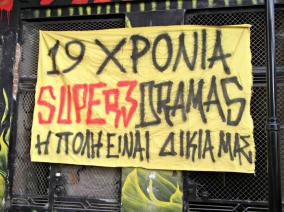 19 ΧΡΟΝΙΑ
SUPER3 DRAMAS
Η ΠΟΛΗ ΕΙΝΑΙ ΔΙΚΙΑ ΜΑΣ